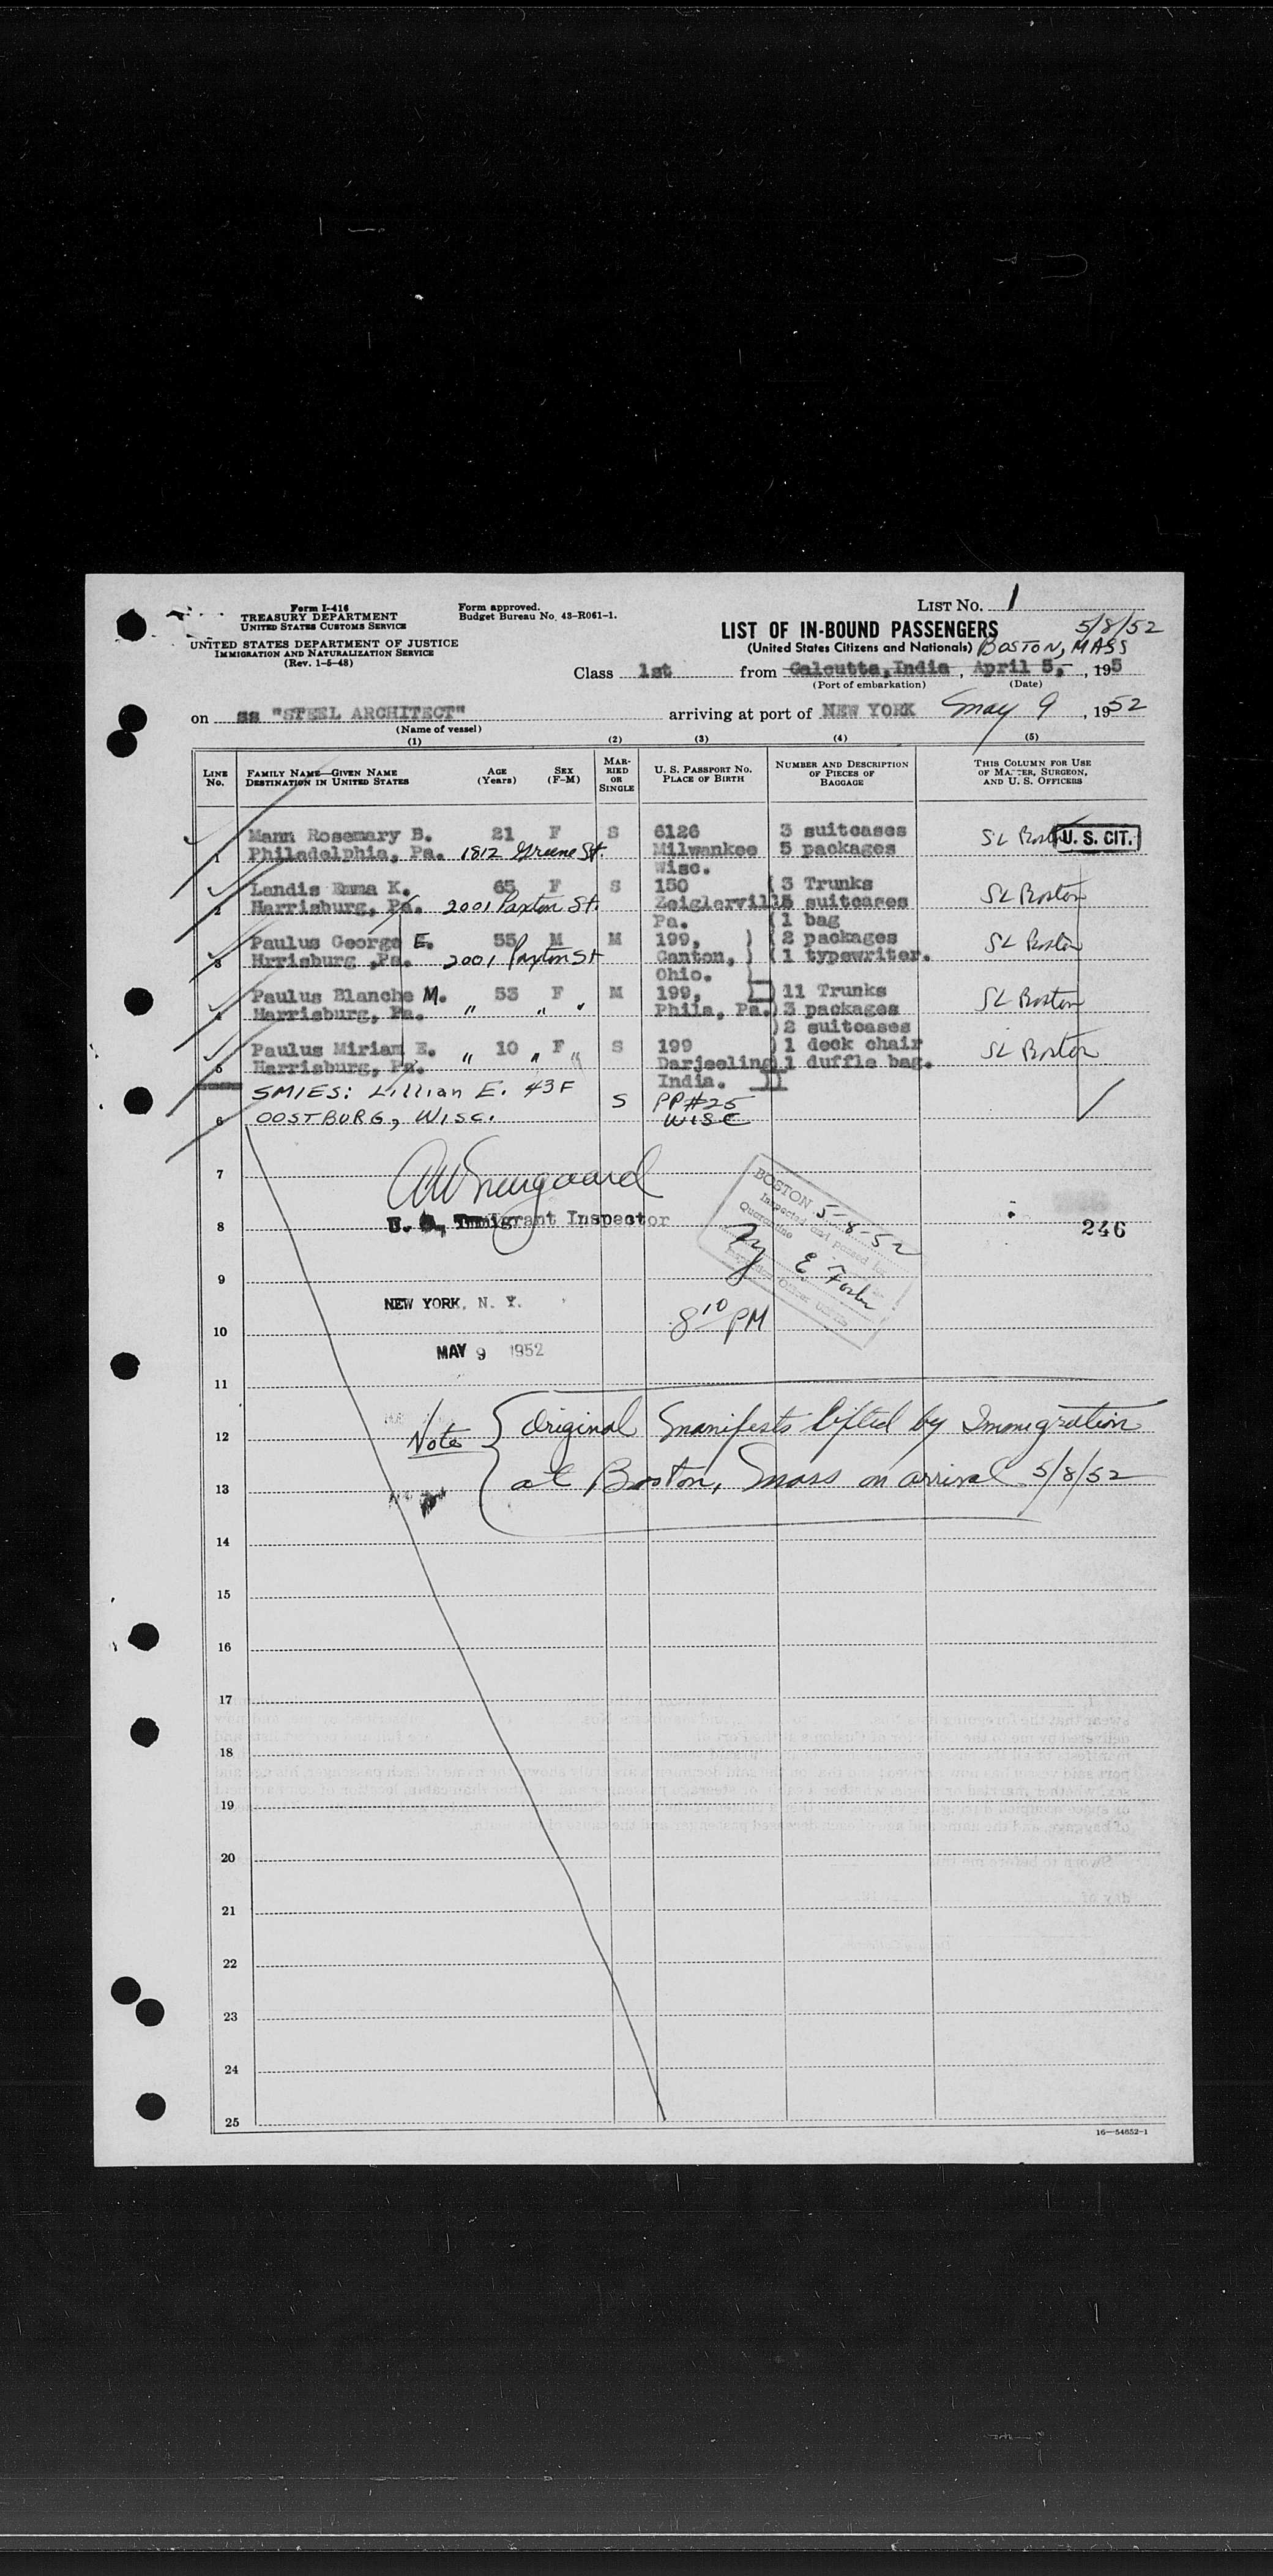 Form I-416
TREASURY DEPARTMENT
UNITED STATES CUSTOMS SERVICE
UNITED STATES DEPARTMENT OF JUSTICE
IMMIGRATION AND NATURALIZATION SERVICE
(Rev. 1-5-48)
Form approved.
Budget Bureau No. 43-R061-1.
LIST NO. 1
LIST OF IN-BOUND PASSENGERS 5/8/52
(United States Citizens and Nationals) BOSTON, MASS
Class 1st from Calcutta, India, April 5, , 195
(Port of embarkation) (Date)
on ss "STEEL ARCHITECT" arriving at port of NEW YORK May 9, 1952
(Name of vessel)
(1) (2) (3) (4) (5)
LINE NO.
FAMILY NAME—GIVEN NAME
DESTINATION IN UNITED STATES
AGE (Years)
SEX (F-M)
MARRIED OR SINGLE
U. S. PASSPORT NO.
PLACE OF BIRTH
NUMBER AND DESCRIPTION
OF PIECES OF
BAGGAGE
THIS COLUMN FOR USE
OF MASTER, SURGEON,
AND U. S. OFFICERS
Mann Rosemary B. 21 F S 6126 3 suitcases SL Boston U. S. CIT.
1 Philadelphia, Pa. 1812 Greene St. Milwankee 5 packages
Wisc.
Landis Emma K. 65 F S 150 3 Trunks SL Boston
2 Harrisburg, Pa. 2001 Paxton St. Zeiglervill 5 suitcases
Pa. 1 bag
Paulus George E. 55 M M 199, 2 packages SL Boston
3 Hrrisburg ,Pa. 2001 Paxton St Canton, 1 typewriter.
Ohio.
Paulus Blanche M. 53 F M 199, 11 Trunks SL Boston
4 Harrisburg, Pa. " " " Phila, Pa. 3 packages
2 suitcases
Paulus Miriam E. 10 F S 199 1 deck chair SL Boston
5 Harrisburg, Pa. " " " Darjeeling 1 duffle bag.
India.
SMIES: Lillian E. 43 F S PP#25
6 OOSTBURG, WISC. WISC
7
8 U. S. Immigrant Inspector
BOSTON 5-8-52
Inspected and passed
Quarantine
E. Foster
246
9
NEW YORK, N. Y.
10 8 10 PM
MAY 9 1952
11
12 Note Original Manifests lifted by Immigration
13 at Boston, Mass on arrival 5/8/52
14
15
16
17
18
19
20
21
22
23
24
25
16—54652-1